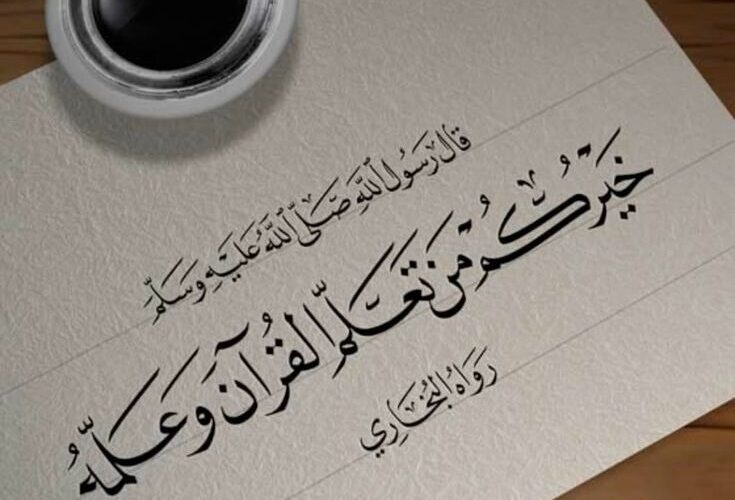 قَالَ رَسُولُ اللَّهِ صَلَّى اللَّهُ عَلَيْهِ وَسَلَّمَ
خَيْرُكُمْ مَنْ تَعَلَّمَ الْقُرْآنَ وَعَلَّمَهُ
رَوَاهُ الْبُخَارِي